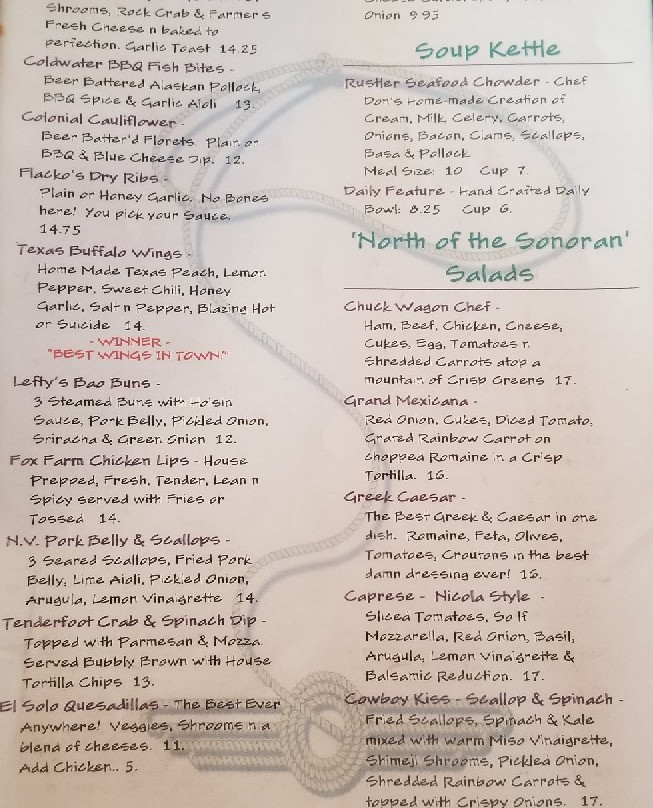 Shrooms, Rock Crab & Farmer s
Fresh Cheese n baked to
perfection. Garlic Toast 14.25
Coldwater BBQ Fish Bites -
Beer Battered Alaskan Pollock,
BBQ Spice & Garlic Aioli 13.
Colonial Cauliflower -
Beer Batter'd Florets. Plain or
BBQ & Blue Cheese Dip. 12.
Flacko's Dry Ribs -
Plain or Honey Garlic. No Bones
here! You pick your Sauce.
14.75
Texas Buffalo Wings -
Home Made Texas Peach, Lemon
Pepper, Sweet Chili, Honey
Garlic, Salt n Pepper, Blazing Hot
or Suicide 14.
- WINNER -
"BEST WINGS IN TOWN."
Lefty's Bao Buns -
3 Steamed Buns with Hoisin
Sauce, Pork Belly, Pickled Onion,
Sriracha & Green Onion 12.
Fox Farm Chicken Lips - House
Prepped, Fresh, Tender, Lean n
Spicy served with Fries or
Tossed 14.
N.V. Pork Belly & Scallops -
3 Seared Scallops, Fried Pork
Belly, Lime Aioli, Pickled Onion,
Arugula, Lemon Vinaigrette 14.
Tenderfoot Crab & Spinach Dip -
Topped with Parmesan & Mozza.
Served Bubbly Brown with House
Tortilla Chips 13.
El Solo Quesadillas - The Best Ever
Anywhere! Veggies, Shrooms n a
blend of cheeses. 11.
Add Chicken.. 5.
Onion 9.95
Soup Kettle
Rustler Seafood Chowder - Chef
Don's Home-made Creation of
Cream, Milk, Celery, Carrots,
Onions, Bacon, Clams, Scallops,
Basa & Pollock
Meal Size: 10 Cup 7.
Daily Feature - Hand Crafted Daily
Bowl: 8.25 Cup 6.
'North of the Sonoran'
Salads
Chuck Wagon Chef -
Ham, Beef, Chicken, Cheese,
Cukes, Egg, Tomatoes n
Shredded Carrots atop a
mountain of Crisp Greens 17.
Grand Mexicana -
Red Onion, Cukes, Diced Tomato,
Grated Rainbow Carrot on
chopped Romaine in a Crisp
Tortilla. 16.
Greek Caesar -
The Best Greek & Caesar in one
dish. Romaine, Feta, Olives,
Tomatoes, Croutons in the best
damn dressing ever! 16.
Caprese - Nicola Style -
Sliced Tomatoes, Soft
Mozzarella, Red Onion, Basil,
Arugula, Lemon Vinaigrette &
Balsamic Reduction. 17.
Cowboy Kiss - Scallop & Spinach -
Fried Scallops, Spinach & Kale
mixed with warm Miso Vinaigrette,
Shimeji Shrooms, Pickled Onion,
Shredded Rainbow Carrots &
topped with Crispy Onions. 17.